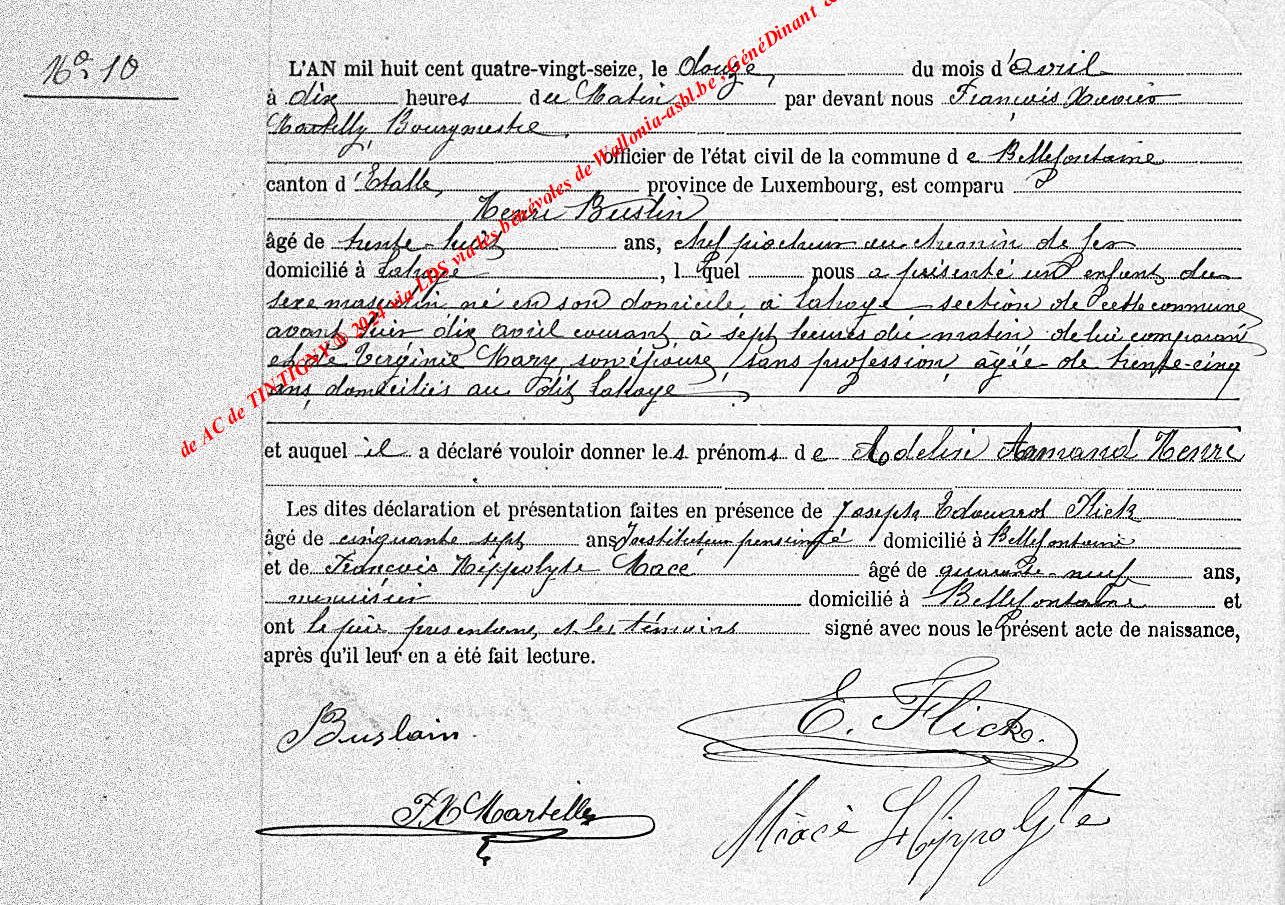 No. 10
L'AN mil huit cent quatre-vingt-seize, le douze, du mois d'avril
à dix heures du Matin par devant nous François Xavier
Martelly, Bourgmestre,
officier de l'état civil de la commune de Bellefontaine
canton d'Etalle, province de Luxembourg, est comparu
Henri Bustin
âgé de trente-huit ans, chef piocheur au chemin de fer
domicilié à Lahage, lequel nous a présenté un enfant du
sexe masculin, né en son domicile à Lahage section de cette commune
avant hier dix avril courant, à sept heures du matin, de lui comparant
et de Virginie Mary, son épouse, sans profession, âgée de trente-cinq
ans, domiciliés au dit Lahage
et auquel il a déclaré vouloir donner les prénoms de Adelin Armand Henri
Les dites déclaration et présentation faites en présence de Joseph Edouard Flick
âgé de cinquante sept ans, Instituteur pensionné domicilié à Bellefontaine
et de François Hippolyte Macé âgé de quarante-neuf ans,
menuisier domicilié à Bellefontaine et
ont le père présentant, et les témoins signé avec nous le présent acte de naissance,
après qu'il leur en a été fait lecture.
Buslain.
E. Flick.
F. X Martelly
Macé Hippolyte
de AC de TINTIGNY ® 2024 via LDS via les bénévoles de Wallonia-asbl.be, GénéDinant &